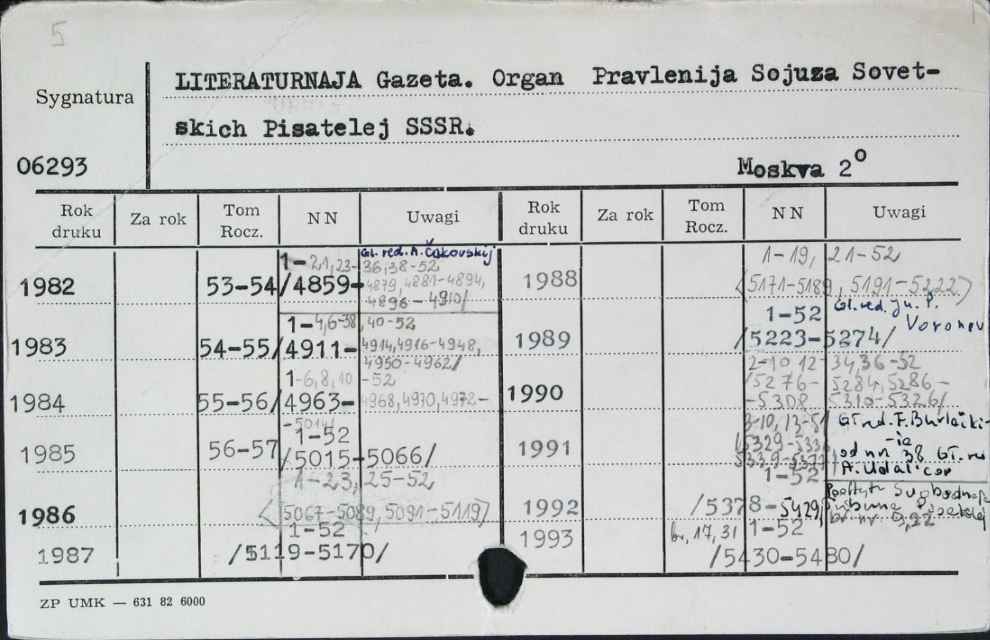 5
LITERATURNAJA Gazeta. Organ Pravlenija Sojuza Sovet-
Sygnatura
skich Pisatelej SSSR.
06293
Moskva 2°
Rok druku Za rok Tom Rocz. NN Uwagi Rok druku Za rok Tom Rocz. NN Uwagi
Gl. red. A. Čakovskij
1-21,23-36,38-52
1982 53-54 /4859-4879,4881-4894,
4896-4910/
1-4,6-38,40-52
1983 54-55 /4911-4914,4916-4948,
4950-4962/
1-6,8,10-52
1984 55-56 /4963-4968,4970,4972-
-5014/
1-52
1985 56-57 /5015-5066/
1-23, 25-52
1986 <5067-5089, 5091-5119>
1-52
1987 /5119-5170/
1-19, 21-52
1988 <5171-5189, 5191-5222>
1-52 Gl. red. Ju. P.
Voronov
1989 /5223-5274/
2-10 12-34,36-52
1990 /5276-5284,5286-
-5308 5310-5326/
3-10, 13-51 Gł. red. F. Burlackij
1991 /5329-5336
5339-5377/ od nr 38 Gł. red
A. Udal'cov
1-52
1992 /5378-5429/
1993 br. 17, 31 1-52
/5430-5480/
ZP UMK — 631 82 6000